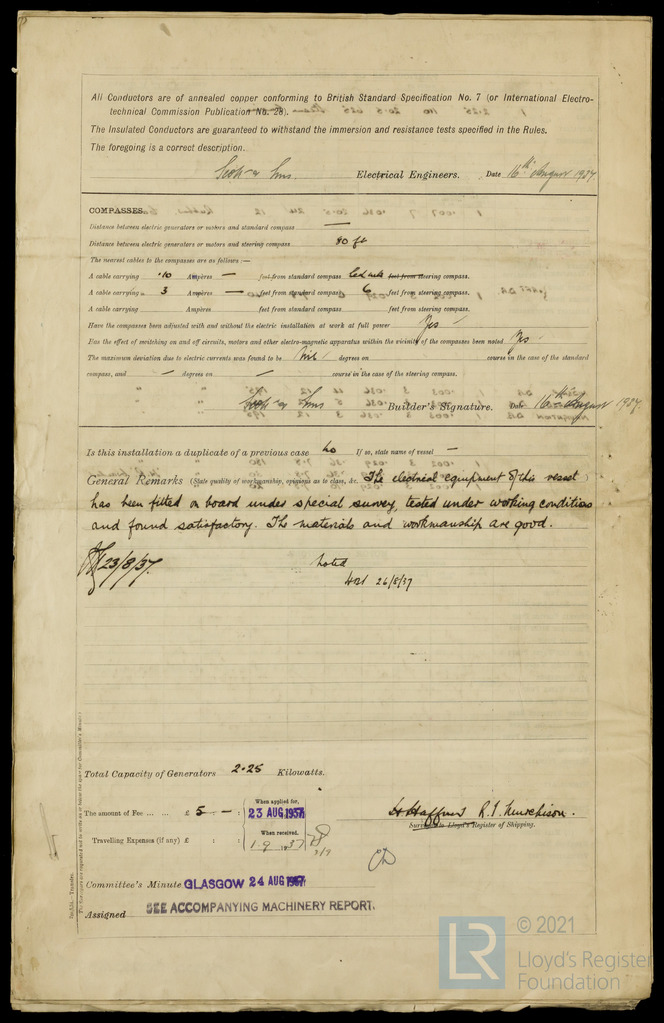 All Conductors are of annealed copper conforming to British Standard Specification No. 7 (or International Electro-
technical Commission Publication No. 28).
The Insulated Conductors are guaranteed to withstand the immersion and resistance tests specified in the Rules.
The foregoing is a correct description.
Scott & Sons. Electrical Engineers. Date 16th August 1937
COMPASSES.
Distance between electric generators or motors and standard compass —
Distance between electric generators or motors and steering compass 80 ft
The nearest cables to the compasses are as follows :—
A cable carrying .10 Ampères — feet from standard compass feet from steering compass.
A cable carrying 3 Ampères — feet from standard compass 6 feet from steering compass.
A cable carrying Ampères feet from standard compass feet from steering compass.
Have the compasses been adjusted with and without the electric installation at work at full power Yes
Has the effect of switching on and off circuits, motors and other electro-magnetic apparatus within the vicinity of the compasses been noted Yes
The maximum deviation due to electric currents was found to be Nil degrees on course in the case of the standard
compass, and — degrees on — course in the case of the steering compass.
Scott & Sons Builder's Signature. Date 16th August 1937.
Is this installation a duplicate of a previous case No If so, state name of vessel —
General Remarks (State quality of workmanship, opinions as to class, &c. The electrical equipment of this vessel
has been fitted on board under special survey, tested under working conditions
and found satisfactory. The materials and workmanship are good.
23/8/37. Noted
26/8/37
Total Capacity of Generators 2.25 Kilowatts.
The amount of Fee ... ... £ 5 : — : When applied for, 23 AUG 1937
Travelling Expenses (if any) £ : : When received, 1.9.1937
3/9
R. J. Hutchison.
Surveyor to Lloyd's Register of Shipping.
Committee's Minute GLASGOW 24 AUG 1937
Assigned SEE ACCOMPANYING MACHINERY REPORT.
© 2021
LR
Lloyd's Register
Foundation